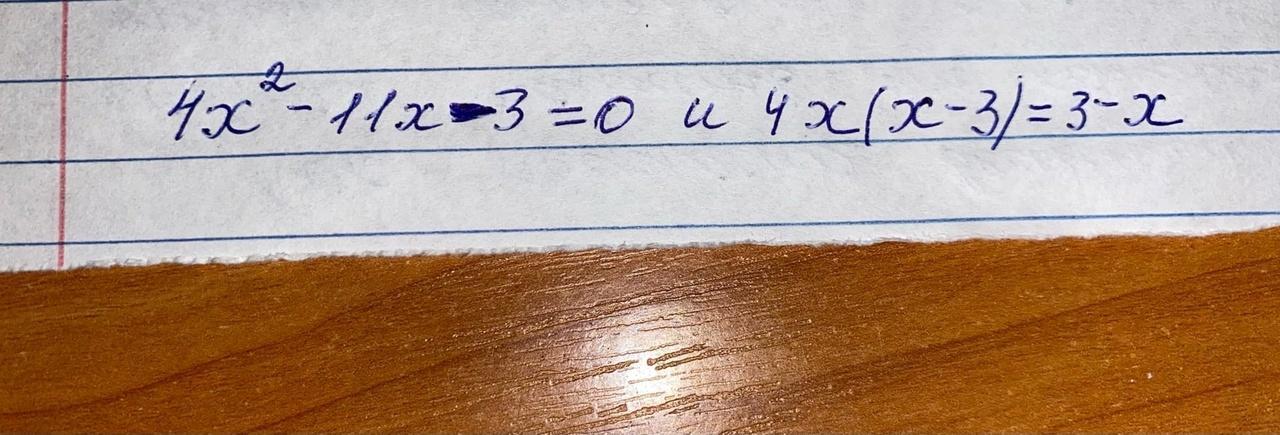 4x² - 11x - 3 = 0 и 4x(x-3) = 3 - x